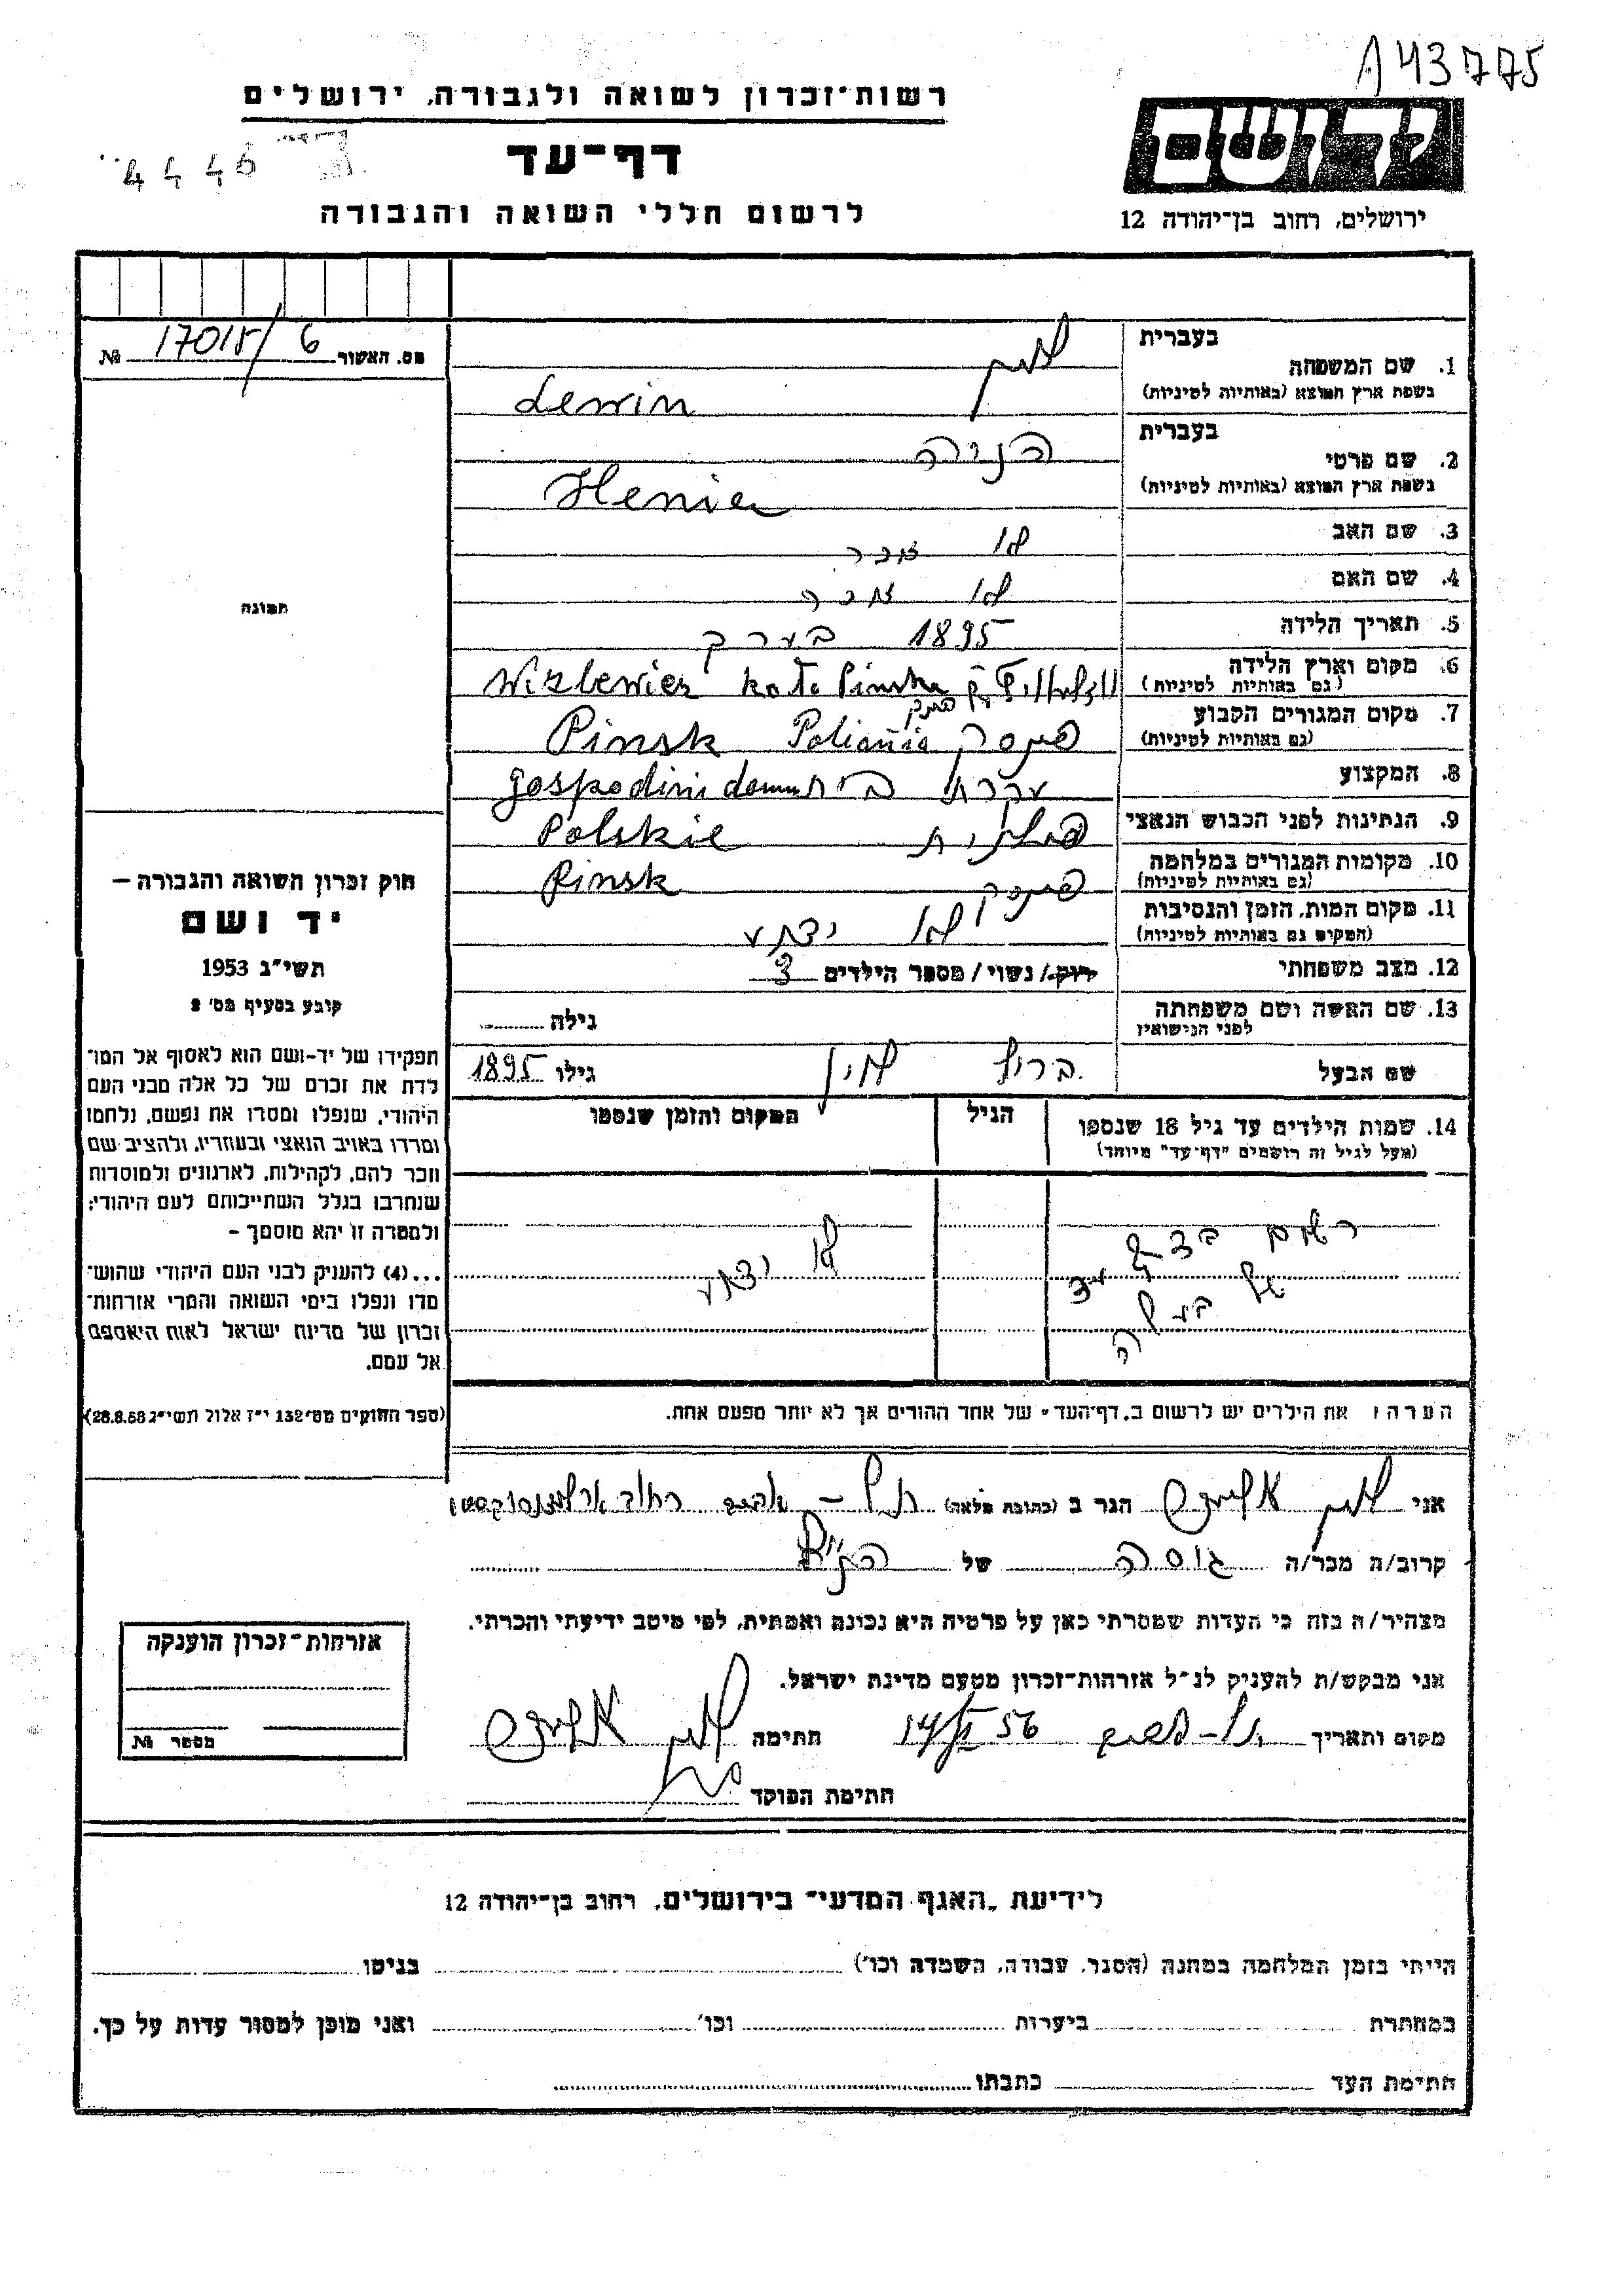 143775
רשות־זכרון לשואה ולגבורה, ירושלים
4446
דף־עד
לרשום חללי השואה והגבורה
ירושלים, רחוב בן־יהודה 12
מס. האשור 17015/6 №
בעברית
לוין
1. שם המשפחה
בשפת ארץ המוצא (באותיות לטיניות)
Lewin
בעברית
הניה
2. שם פרטי
בשפת ארץ המוצא (באותיות לטיניות)
Henia
3. שם האב
לא זוכר
4. שם האם
לא זוכר
תמונה
5. תאריך הלידה
1895 בערך
6. מקום וארץ הלידה
(גם באותיות לטיניות)
koło Pinska
7. מקום המגורים הקבוע
(גם באותיות לטיניות)
פינסק Pinsk
8. המקצוע
עקרת בית
9. הנתינות לפני הכבוש הנאצי
פולנית Polskie
10. מקומות המגורים במלחמה
(גם באותיות לטיניות)
פינסק Pinsk
11. מקום המות, הזמן והנסיבות
(המקום גם באותיות לטיניות)
לא ידוע
12. מצב משפחתי
רוק/נשוי/מספר הילדים 3
13. שם האשה ושם משפחתה
לפני הנישואין
גילה
שם הבעל
ברוך לוין גילו 1895
14. שמות הילדים עד גיל 18 שנספו
(מעל לגיל זה רושמים "דף־עד" מיוחד)
הגיל
המקום והזמן שנספו
רשום בדף
של
לא ידוע
חוק זכרון השואה והגבורה —
יד ושם
תשי״ג 1953
קובע בסעיף מס׳ 2
תפקידו של יד־ושם הוא לאסוף אל המו־
לדת את זכרם של כל אלה מבני העם
היהודי, שנפלו ומסרו את נפשם, נלחמו
ומרדו באויב הנאצי ובעוזריו, ולהציב שם
וזכר להם, לקהילות, לארגונים ולמוסדות
שנחרבו בגלל השתייכותם לעם היהודי;
ולמטרה זו יהא מוסמך —
...(4) להעניק לבני העם היהודי שהוש־
מדו ונפלו בימי השואה והמרי אזרחות־
זכרון של מדינת ישראל לאות היאספם
אל עמם.
(ספר החוקים מס׳ 132 י״ז אלול תשי״ג 28.8.53)
הערה: את הילדים יש לרשום ב„דף־העד״ של אחד ההורים אך לא יותר מפעם אחת.
אני לוין הגר ב (כתובת מלאה) תל־ רחוב
קרוב/ה מכר/ה גיסה של הנ״ל
מצהיר/ה בזה כי העדות שמסרתי כאן על פרטיה היא נכונה ואמתית, לפי מיטב ידיעתי והכרתי.
אני מבקש/ת להעניק לנ״ל אזרחות־זכרון מטעם מדינת ישראל.
מקום ותאריך 56 חתימה לוין
חתימת הפוקד
אזרחות־זכרון הוענקה
מספר №
לידיעת „האגף המדעי״ בירושלים, רחוב בן־יהודה 12
הייתי בזמן המלחמה במחנה (הסגר, עבודה, השמדה וכו׳) בגיטו
במחתרת ביערות וכו׳ ואני מוכן למסור עדות על כך.
חתימת העד כתבתו